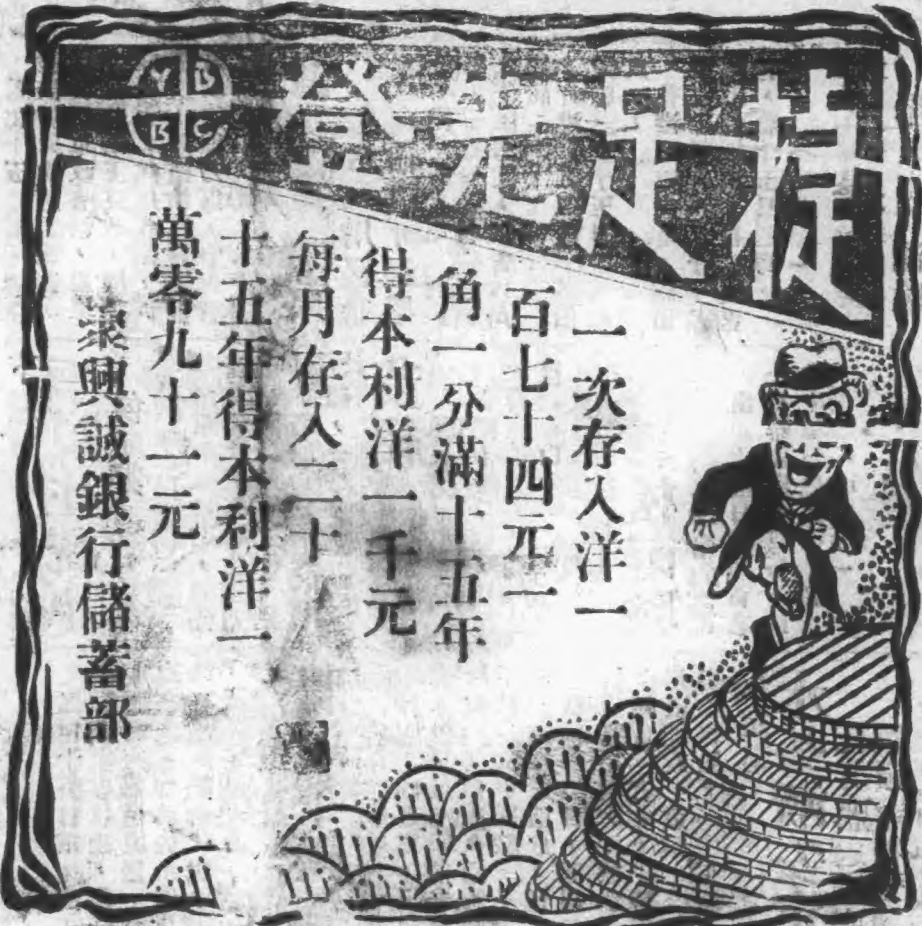 捷足先登
Y B
B C
一次存入洋一
百七十四元一
角一分滿十五年
得本利洋一千元
每月存入二十
十五年得本利洋一
萬零九十一元
聚興誠銀行儲蓄部